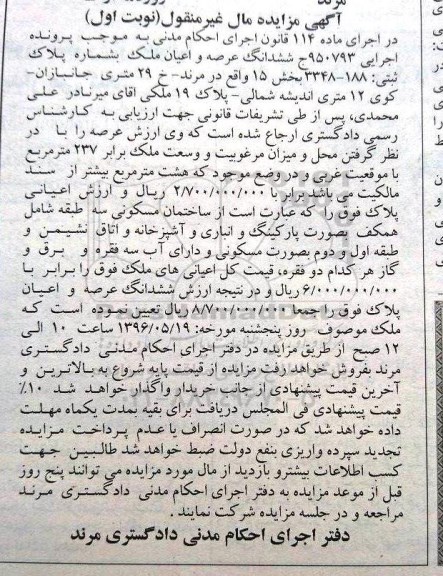 مرند
آگهی مزایده مال غیرمنقول(نوبت اول)
در اجرای ماده ۱۱۴ قانون اجرای احکام مدنی به موجب پرونده
اجرایی ۹۵۰۷۹۳ج ششدانگ عرصه و اعیان ملک بشماره پلاک
ثبتی: ۱۸۸-۳۳۴۸ بخش ۱۵ واقع در مرند- خ ۲۹ متری جانبازان-
کوی ۱۲ متری اندیشه شمالی- پلاک ۱۹ ملکی اقای میرنادر علی
محمدی، پس از طی تشریفات قانونی جهت ارزیابی به کارشناس
رسمی دادگستری ارجاع شده است که وی ارزش عرصه را با در
نظر گرفتن محل و میزان مرغوبیت و وسعت ملک برابر ۲۳۷ مترمربع
با موقعیت غربی و در وضع موجود که هشت مترمربع بیشتر از سند
مالکیت می باشد برابر با ۲/۷۰۰/۰۰۰/۰۰۰ ریال و ارزش اعیانی
پلاک فوق را که عبارت است از ساختمان مسکونی سه طبقه شامل
همکف بصورت پارکینگ و انباری و آشپزخانه و اتاق نشیمن و
طبقه اول و دوم بصورت مسکونی و دارای آب سه فقره و برق و
گاز هر کدام دو فقره، قیمت کل اعیانی های ملک فوق را برابر با
۶/۰۰۰/۰۰۰/۰۰۰ ریال و در نتیجه ارزش ششدانگ عرصه و اعیان
پلاک فوق را جمعا ۸/۷۰۰/۰۰۰/۰۰۰ ریال تعیین نموده است که
ملک موصوف روز پنجشنبه مورخه: ۱۳۹۶/۰۵/۱۹ ساعت ۱۰ الی
۱۲ صبح از طریق مزایده در دفتر اجرای احکام مدنی دادگستری
مرند بفروش خواهد رفت مزایده از قیمت پایه شروع به بالاترین و
آخرین قیمت پیشنهادی از جانب خریدار واگذار خواهد شد ۱۰٪
قیمت پیشنهادی فی المجلس دریافت برای بقیه بمدت یکماه مهلت
داده خواهد شد که در صورت انصراف یا عدم پرداخت مزایده
تجدید سپرده واریزی بنفع دولت ضبط خواهد شد طالبین جهت
کسب اطلاعات بیشترو بازدید از مال مورد مزایده می توانند پنج روز
قبل از موعد مزایده به دفتر اجرای احکام مدنی دادگستری مرند
مراجعه و در جلسه مزایده شرکت نمایند.
دفتر اجرای احکام مدنی دادگستری مرند